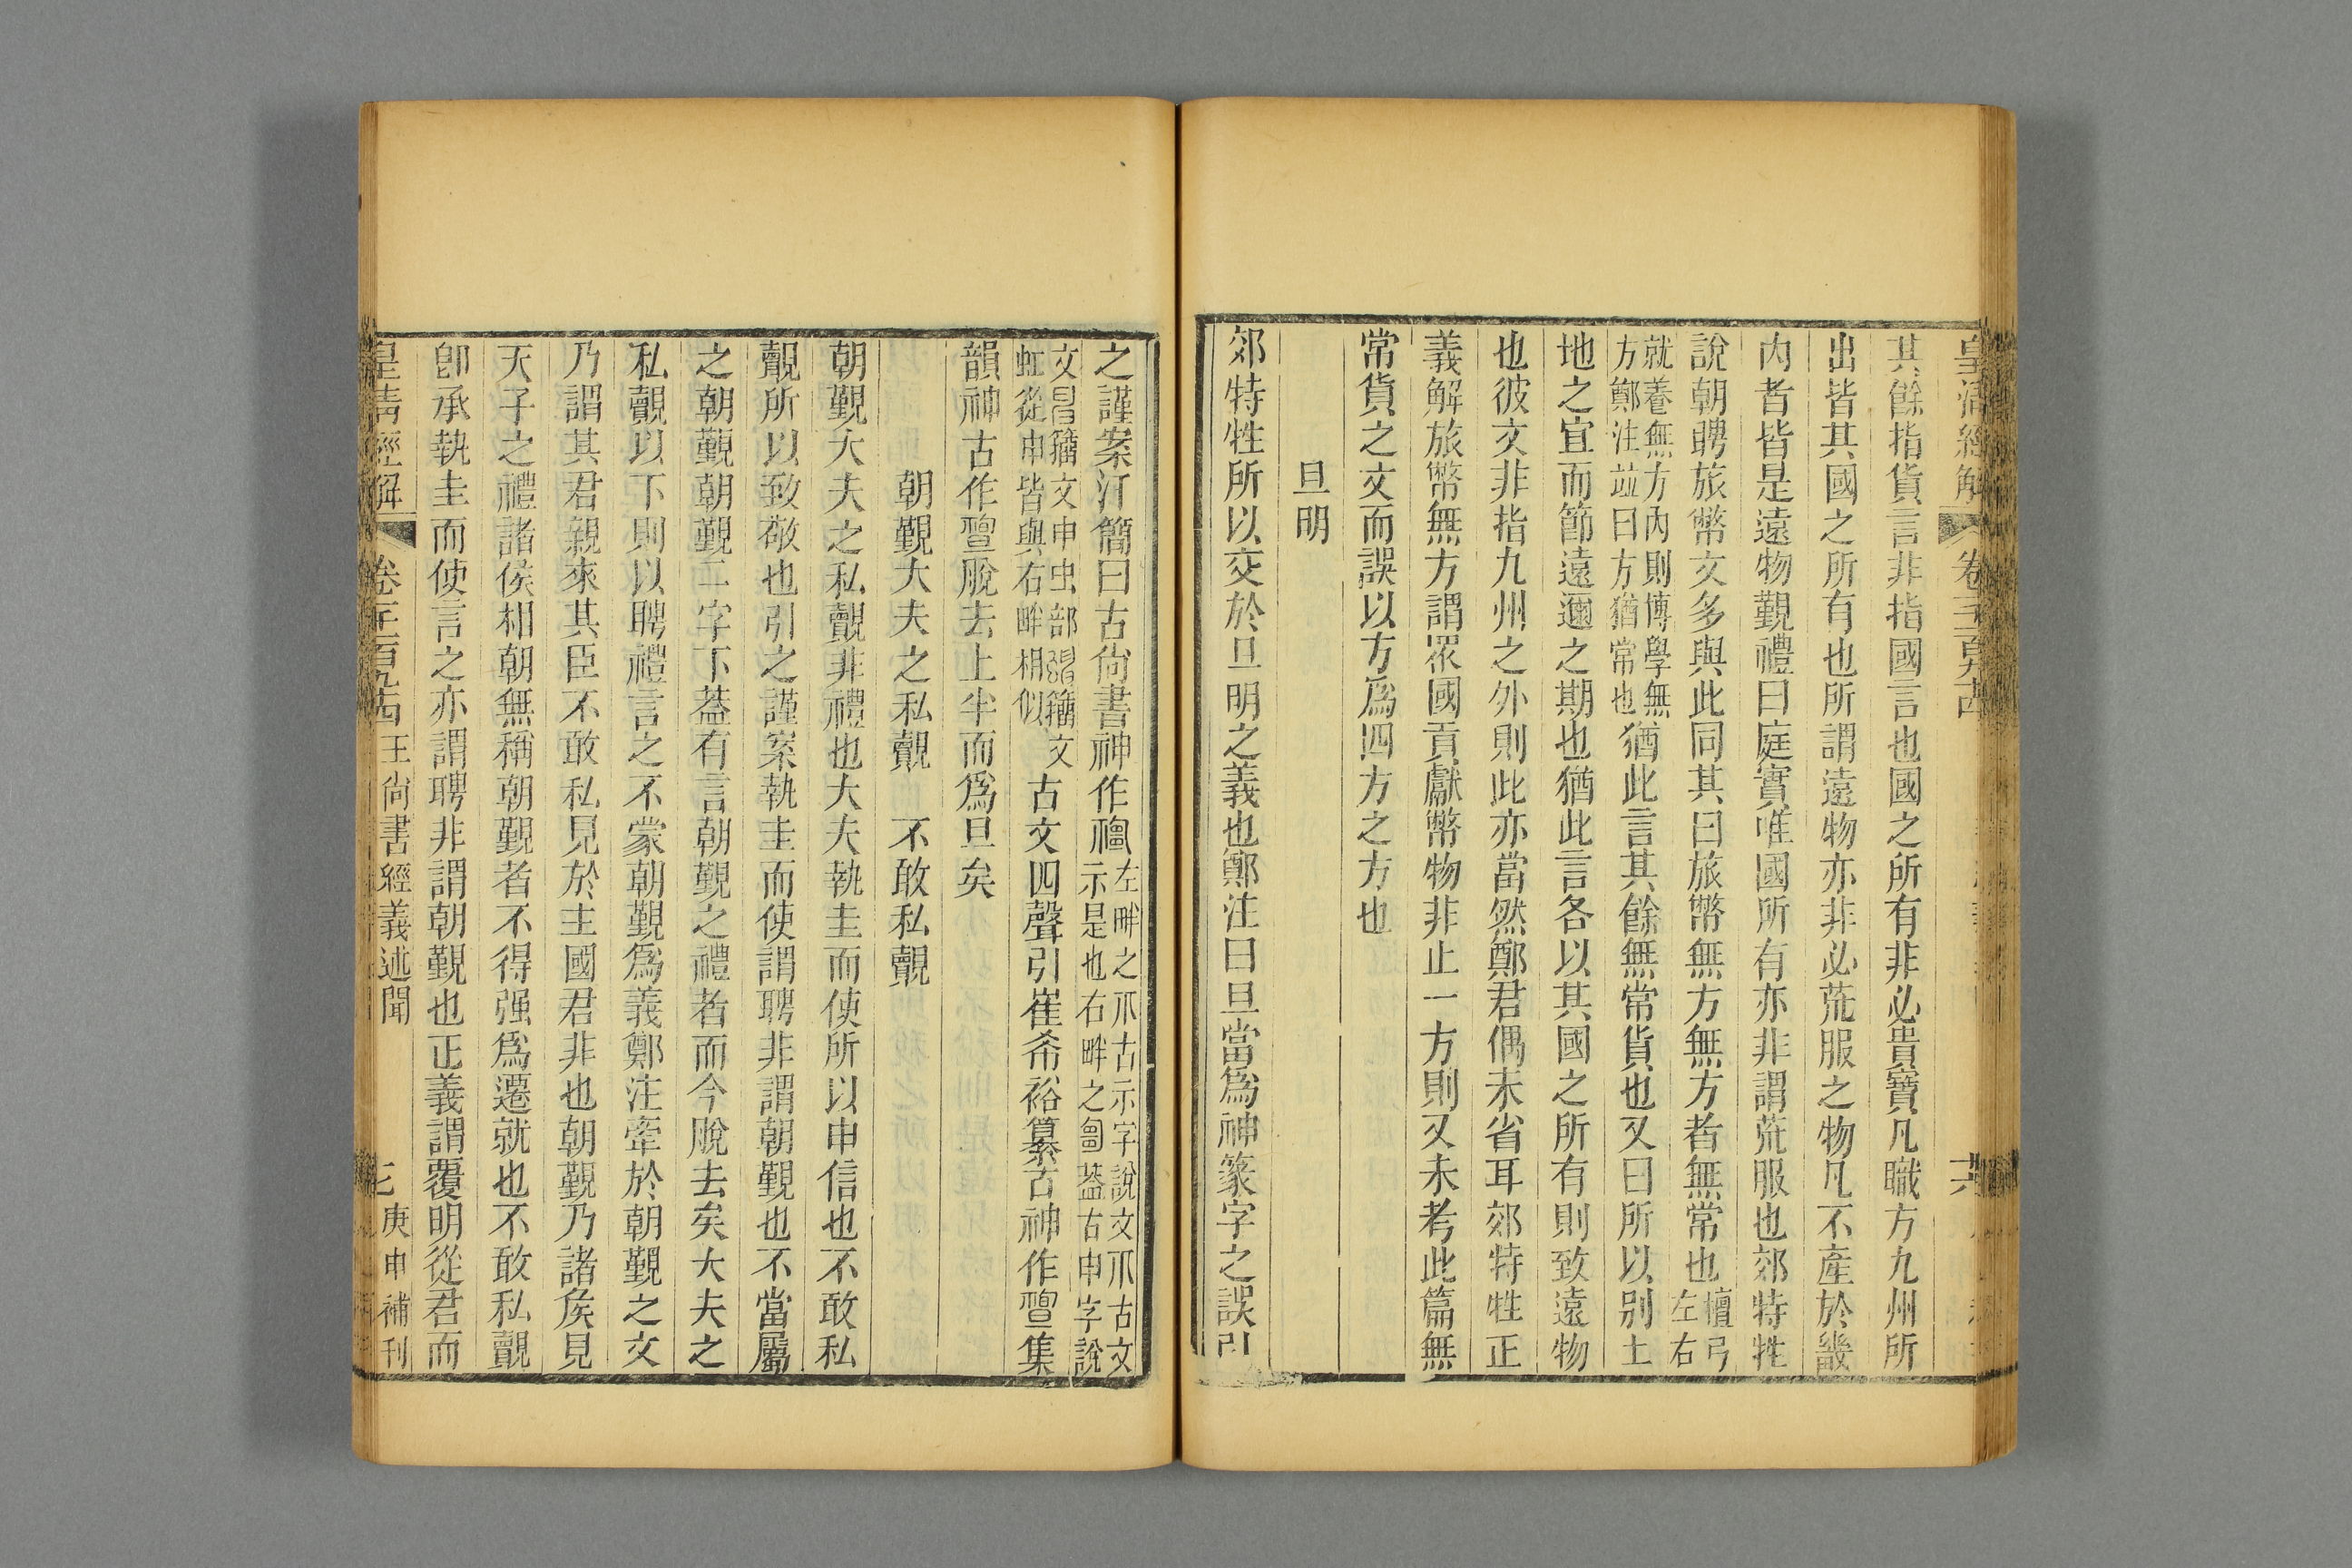 皇清經解 卷一千一百九十四 十六
其餘指貨言非指國言也國之所有非必貴寶凡職方九州所
出皆其國之所有也所謂遠物亦非必荒服之物凡不產於畿
內者皆是遠物覲禮曰庭實唯國所有亦非謂荒服也郊特牲
說朝聘旅幣文多與此同其曰旅幣無方無方者無常也檀弓左右
就養無方內則博學無方鄭注竝曰方猶常也猶此言其餘無常貨也又曰所以別土
地之宜而節遠邇之期也猶此言各以其國之所有則致遠物
也彼文非指九州之外則此亦當然鄭君偶未省耳郊特牲正
義解旅幣無方謂眾國貢獻幣物非止一方則又未考此篇無
常貨之文而誤以方爲四方之方也
旦明
郊特牲所以交於旦明之義也鄭注曰旦當爲神篆字之誤引
之謹案汗簡曰古尙書神作左畔之爪古示字說文爪古文示是也右畔之蓋古申字說
文籒文申虫部籒文虹從申皆與右畔相似古文四聲引崔希裕纂古神作集
韻神古作脫去上半而爲旦矣
朝覲大夫之私覿 不敢私覿
朝覲大夫之私覿非禮也大夫執圭而使所以申信也不敢私
覿所以致敬也引之謹案執圭而使謂聘非謂朝覲也不當屬
之朝覲朝覲二字下蓋有言朝覲之禮者而今脫去矣大夫之
私覿以下則以聘禮言之不蒙朝覲爲義鄭注牽於朝覲之文
乃謂其君親來其臣不敢私見於主國君非也朝覲乃諸矦見
天子之禮諸侯相朝無稱朝覲者不得强爲遷就也不敢私覿
卽承執圭而使言之亦謂聘非謂朝覲也正義謂覆明從君而
皇清經解 卷 王尙書經義述聞 庚申補刊